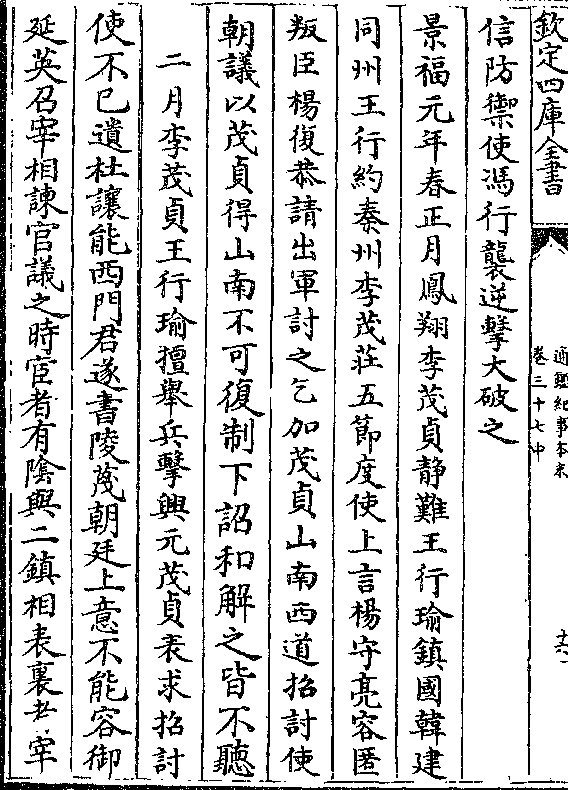 欽定四庫全書
通鑑紀事本末
卷三十七中
信防禦使馮行襲逆擊大破之
景福元年春正月鳳翔李茂貞靜難王行瑜鎮國韓建
同州王行約秦州李茂莊五節度使上言楊守亮容匿
叛臣楊復恭請出軍討之乞加茂貞山南西道招討使
朝議以茂貞得山南不可復制下詔和解之皆不聽
二月李茂貞王行瑜擅舉兵擊興元茂貞表求招討
使不已遺杜讓能西門君遂書陵蔑朝廷上意不能容御
延英召宰相諫官議之時宦者有陰與二鎮相表裏者宰